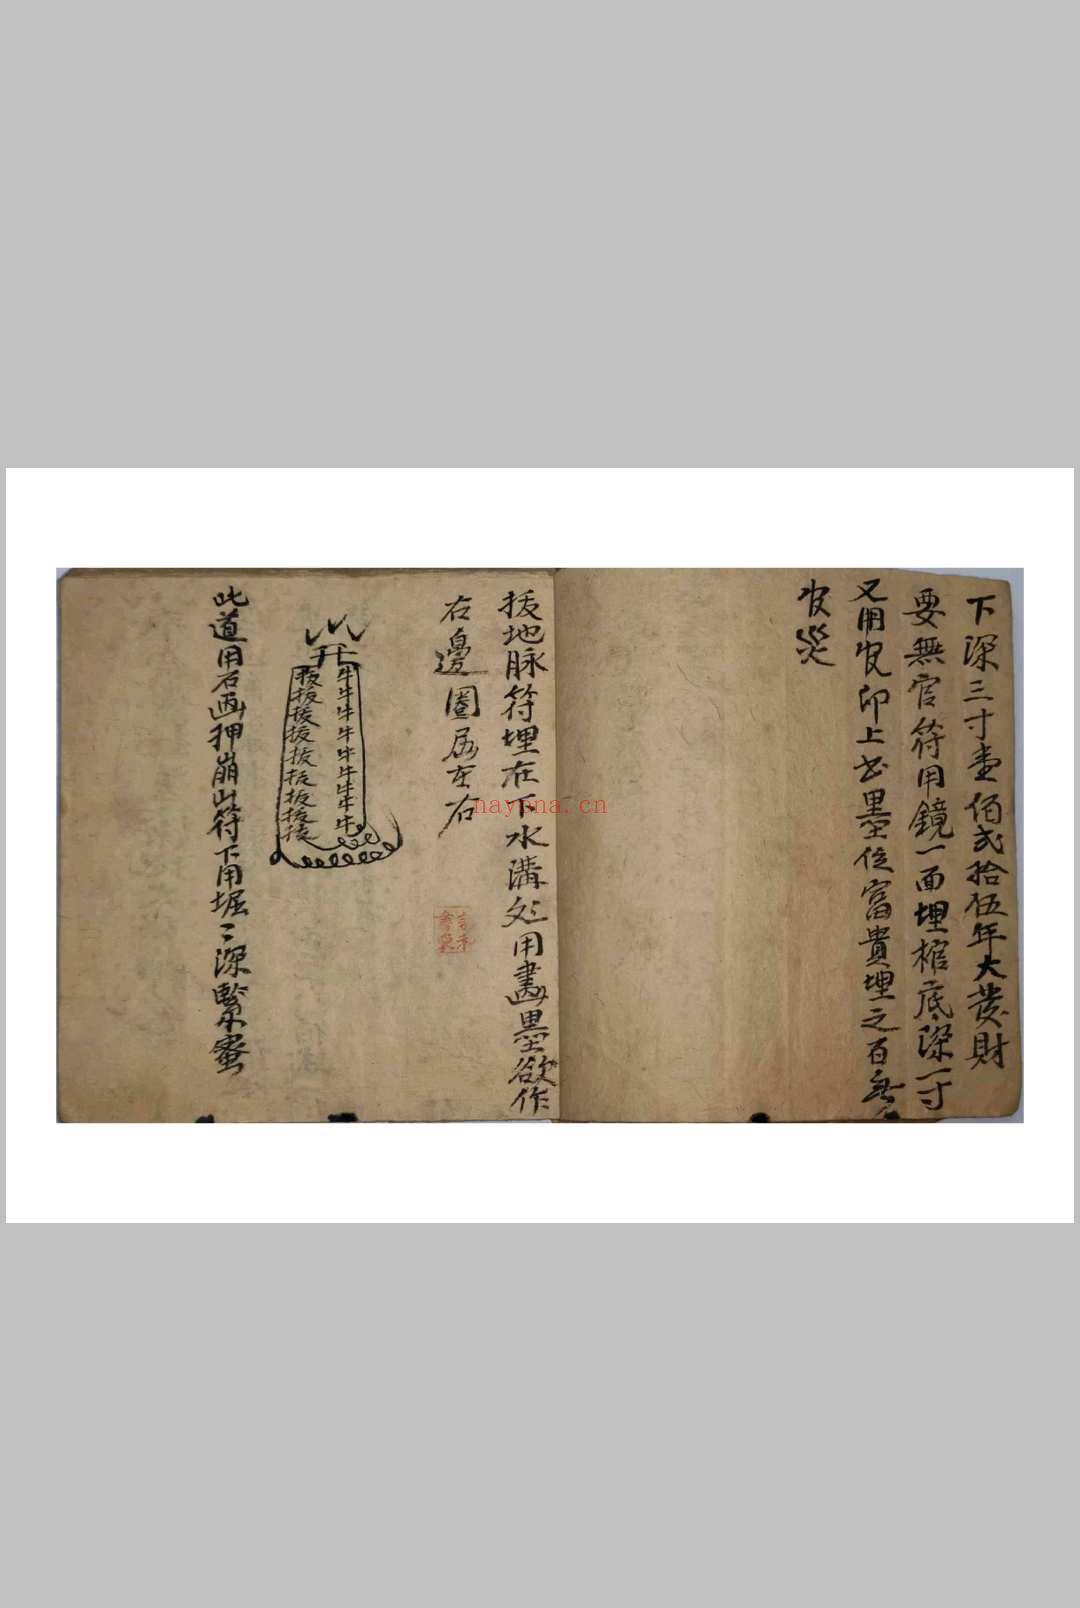 下深三寸壹佰弍拾伍年大發財
要無官符用鏡一面埋棺底深一寸
又用 印上 墨 富貴埋之百無
災
拔地脉符埋在下水溝处用畫墨欲作
右邊圖 左右
開
牛牛牛牛牛牛牛牛
拔拔拔拔拔拔拔拔拔
此道用石画押崩山符下用堀〻深緊蜜
nayona.cn